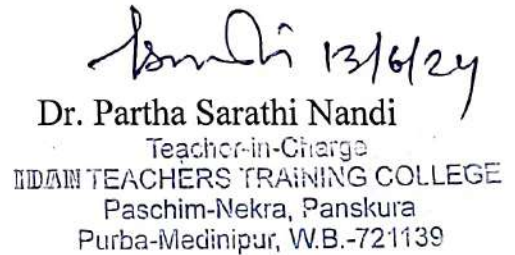 13/6/24
Dr. Partha Sarathi Nandi
Teacher-in-Charge
TEACHERS TRAINING COLLEGE
Paschim-Nekra, Panskura
Purba-Medinipur, W.B.-721139